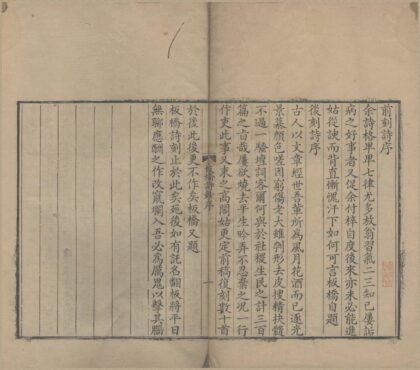 前刻詩序
余詩格卑卑七律尤多放翁習氣二三知已屢詬
病之好事者又促余付梓自度後來亦未必能進
姑從諛而背直慚愧汗下如何可言板橋自題
後刻詩序
古人以文章經世吾輩所為風月花酒而已逐光
景慕顏色嗟困窮傷老大雖刳形去皮搜精抉髓
不過一騷壇詞客爾何與於社稷生民之計三百
篇之旨哉屢欲燒去平生吟弄不忍棄之況一行
作吏此事又束之高閣姑更定前稿復刻數十首
於後此後更不作矣板橋又題
板橋詩刻止於此矣死後如有託名翻板將平日
無聊應酬之作改竄爛入吾必為厲鬼以擊其腦